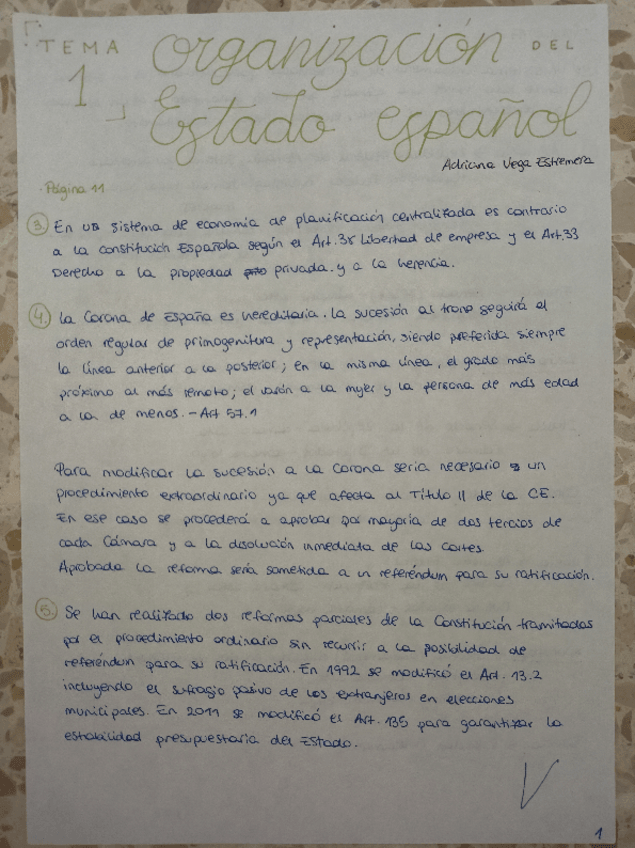 TEMA 1 Organización DEL
Estado español
Adriana Vega Estremera
Página 11
3. En un sistema de economía de planificación centralizada es contrario
a la constitución Española según el Art.38 Libertad de empresa y el Art.33
Derecho a la propiedad privada. y a la herencia.
4. La Corona de España es hereditaria. La sucesión al trono seguirá el
orden regular de primogenitura y representación, siendo preferida siempre
la línea anterior a la posterior; en la misma línea, el grado más
próximo al más remoto; el varón a la mujer y la persona de más edad
a la de menos. - Art 57.1
Para modificar la sucesión a la Corona sería necesario un
procedimiento extraordinario ya que afecta al Título II de la CE.
En ese caso se procederá a aprobar por mayoría de dos tercios de
cada Cámara y a la disolución inmediata de las Cortes.
Aprobada la reforma sería sometida a un referéndum para su ratificación.
5. Se han realizado dos reformas parciales de la Constitución tramitadas
por el procedimiento ordinario sin recurrir a la posibilidad de
referéndum para su ratificación. En 1992 se modificó el Art. 13.2
incluyendo el sufragio pasivo de los extranjeros en elecciones
municipales. En 2011 se modificó el Art. 135 para garantizar la
estabilidad presupuestaria del Estado.
1